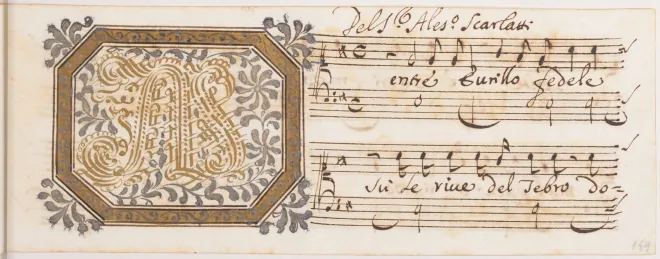 Del S.r Ales.o Scarlatti
entre Eurillo fedele
Sù le rive del Tebro do=